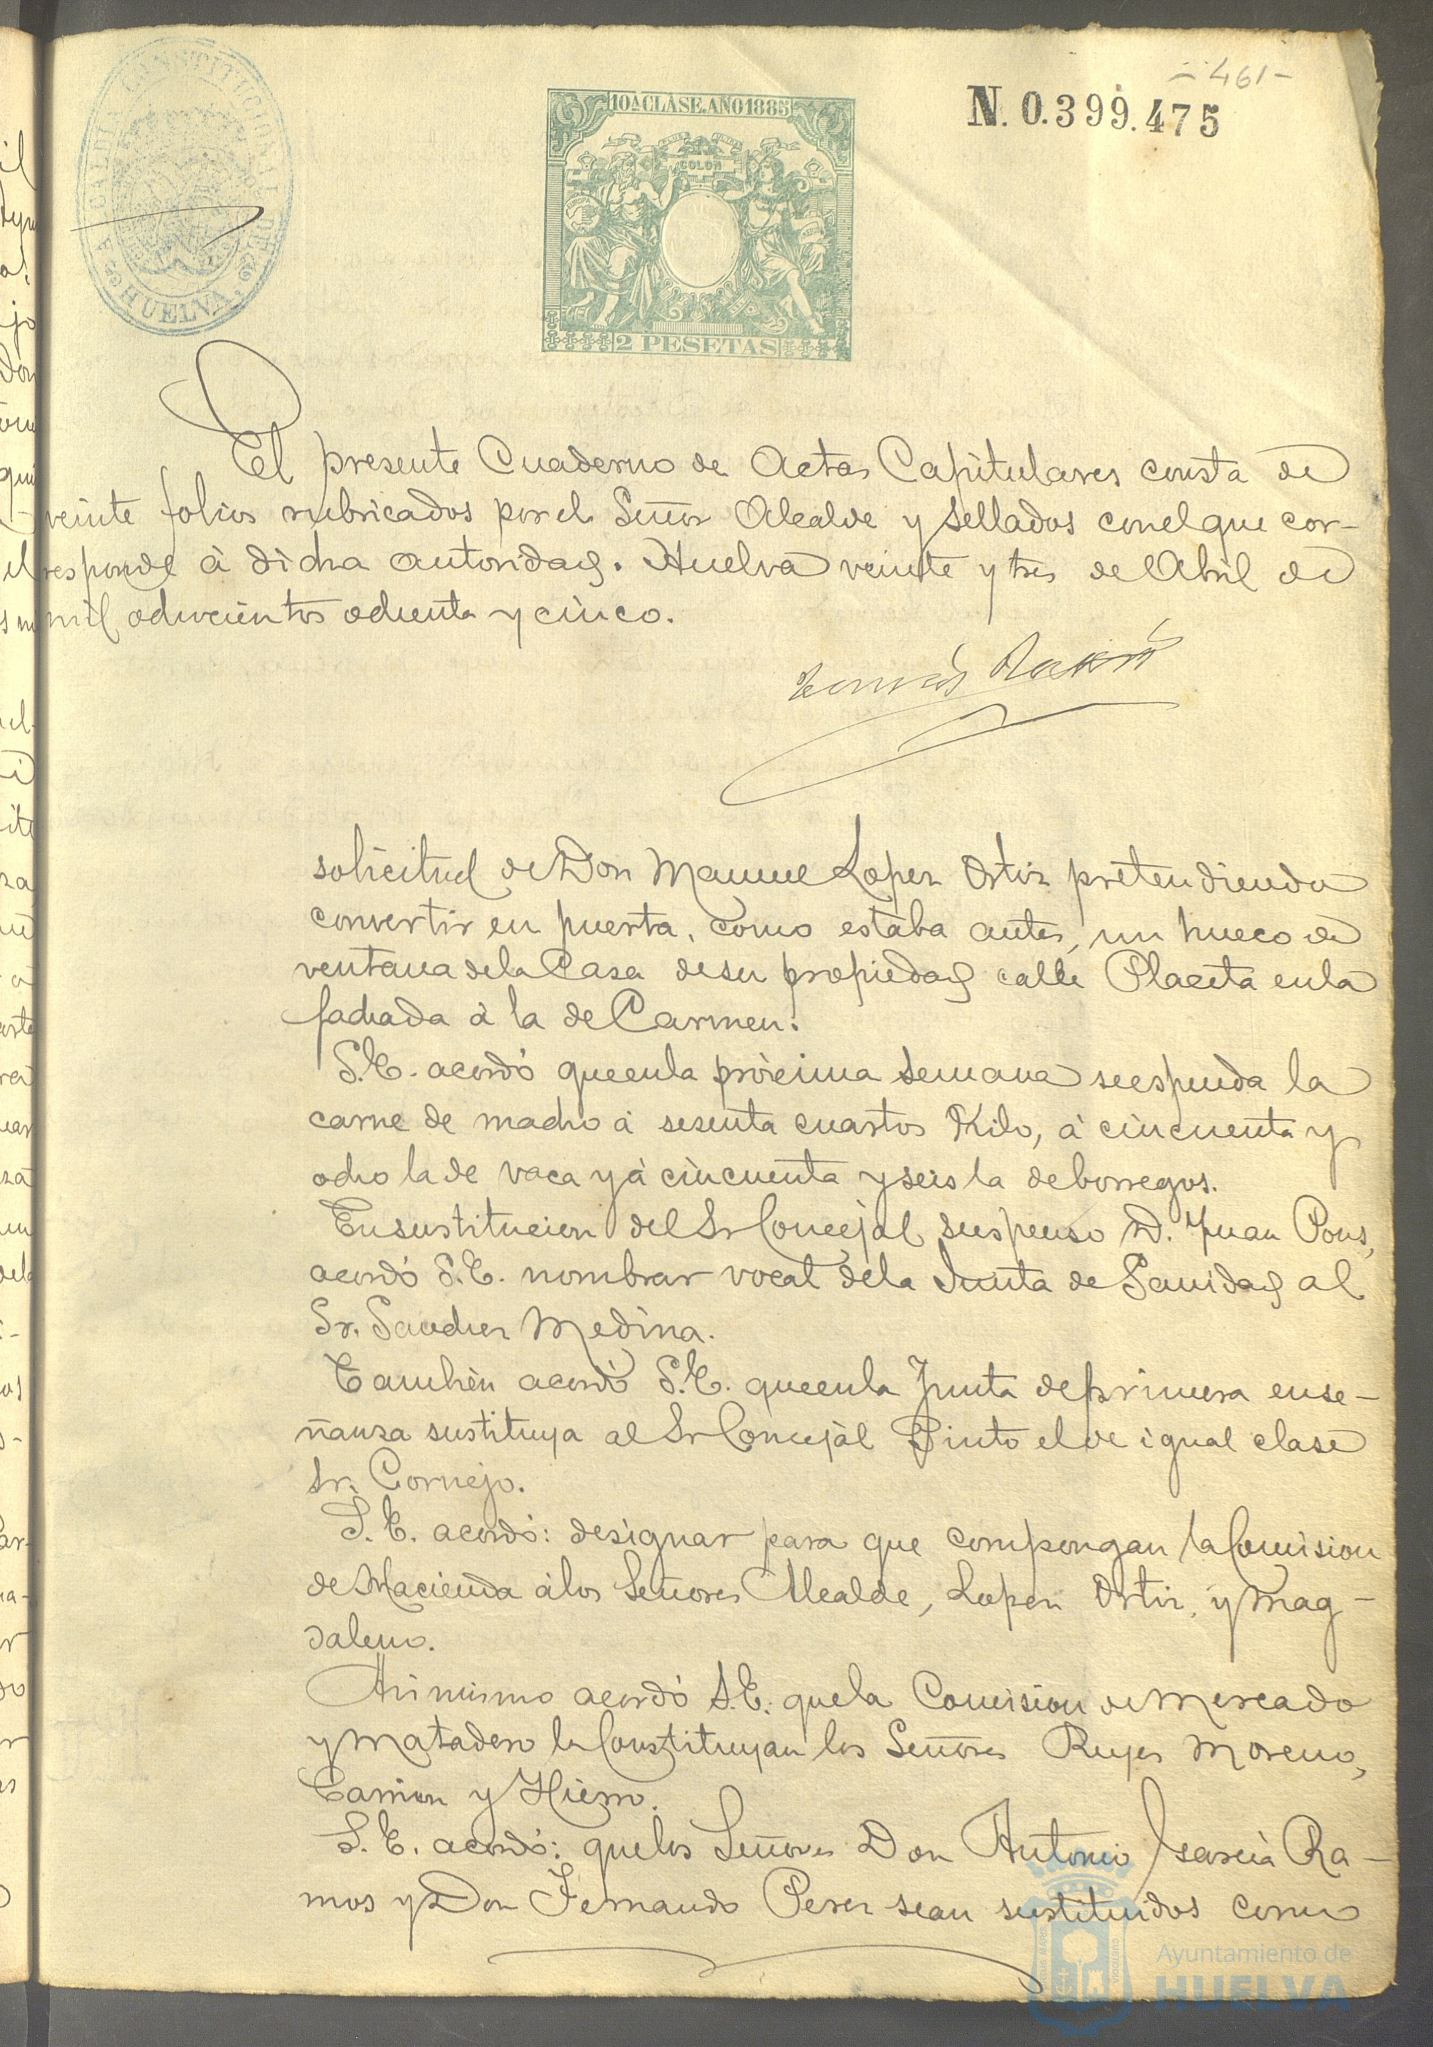 -461-
N. 0.399.475
ALCALDIA CONSTITUCIONAL DE HUELVA
10ª CLASE. AÑO 1885
COLON
2 PESETAS
El presente Cuaderno de Actas Capitulares consta de
veinte folios rubricados por el Señor Alcalde y sellados con el que cor-
responde á dicha autoridad. Huelva veinte y tres de Abril de
mil ochocientos ochenta y cinco.
solicitud de Don Manuel Lopez Ortiz pretendiendo
convertir en puerta, como estaba antes, un hueco de
ventana de la Casa de su propiedad calle Placeta en la
fachada á la de Carmen.
S.E. acordó que en la próxima semana se espenda la
carne de macho á sesenta cuartos Kilo, á cincuenta y
ocho la de vaca y á cincuenta y seis la de borregos.
En sustitucion del Sr Concejal suspenso D. Juan Pons,
acordó S.E. nombrar vocal de la Junta de Sanidad al
Sr. Sanchez Medina.
También acordó S.E. que en la Junta de primera ense-
ñanza sustituya al Sr Concejál Pinto el de igual clase
Sr. Cornejo.
S.E. acordó: designar para que compongan la Comision
de Hacienda á los Señores Alcalde, Lopez Ortiz, y Mag-
daleno.
Asi mismo acordó S.E. que la Comision de Mercado
y Matadero la Constituyan los Señores Reyes Moreno,
Carrion y Hierro.
S.E. acordó: que los Señores Don Antonio Garcia Ra-
mos y Don Fernando Perez sean sustituidos como
Ayuntamiento de
HUELVA